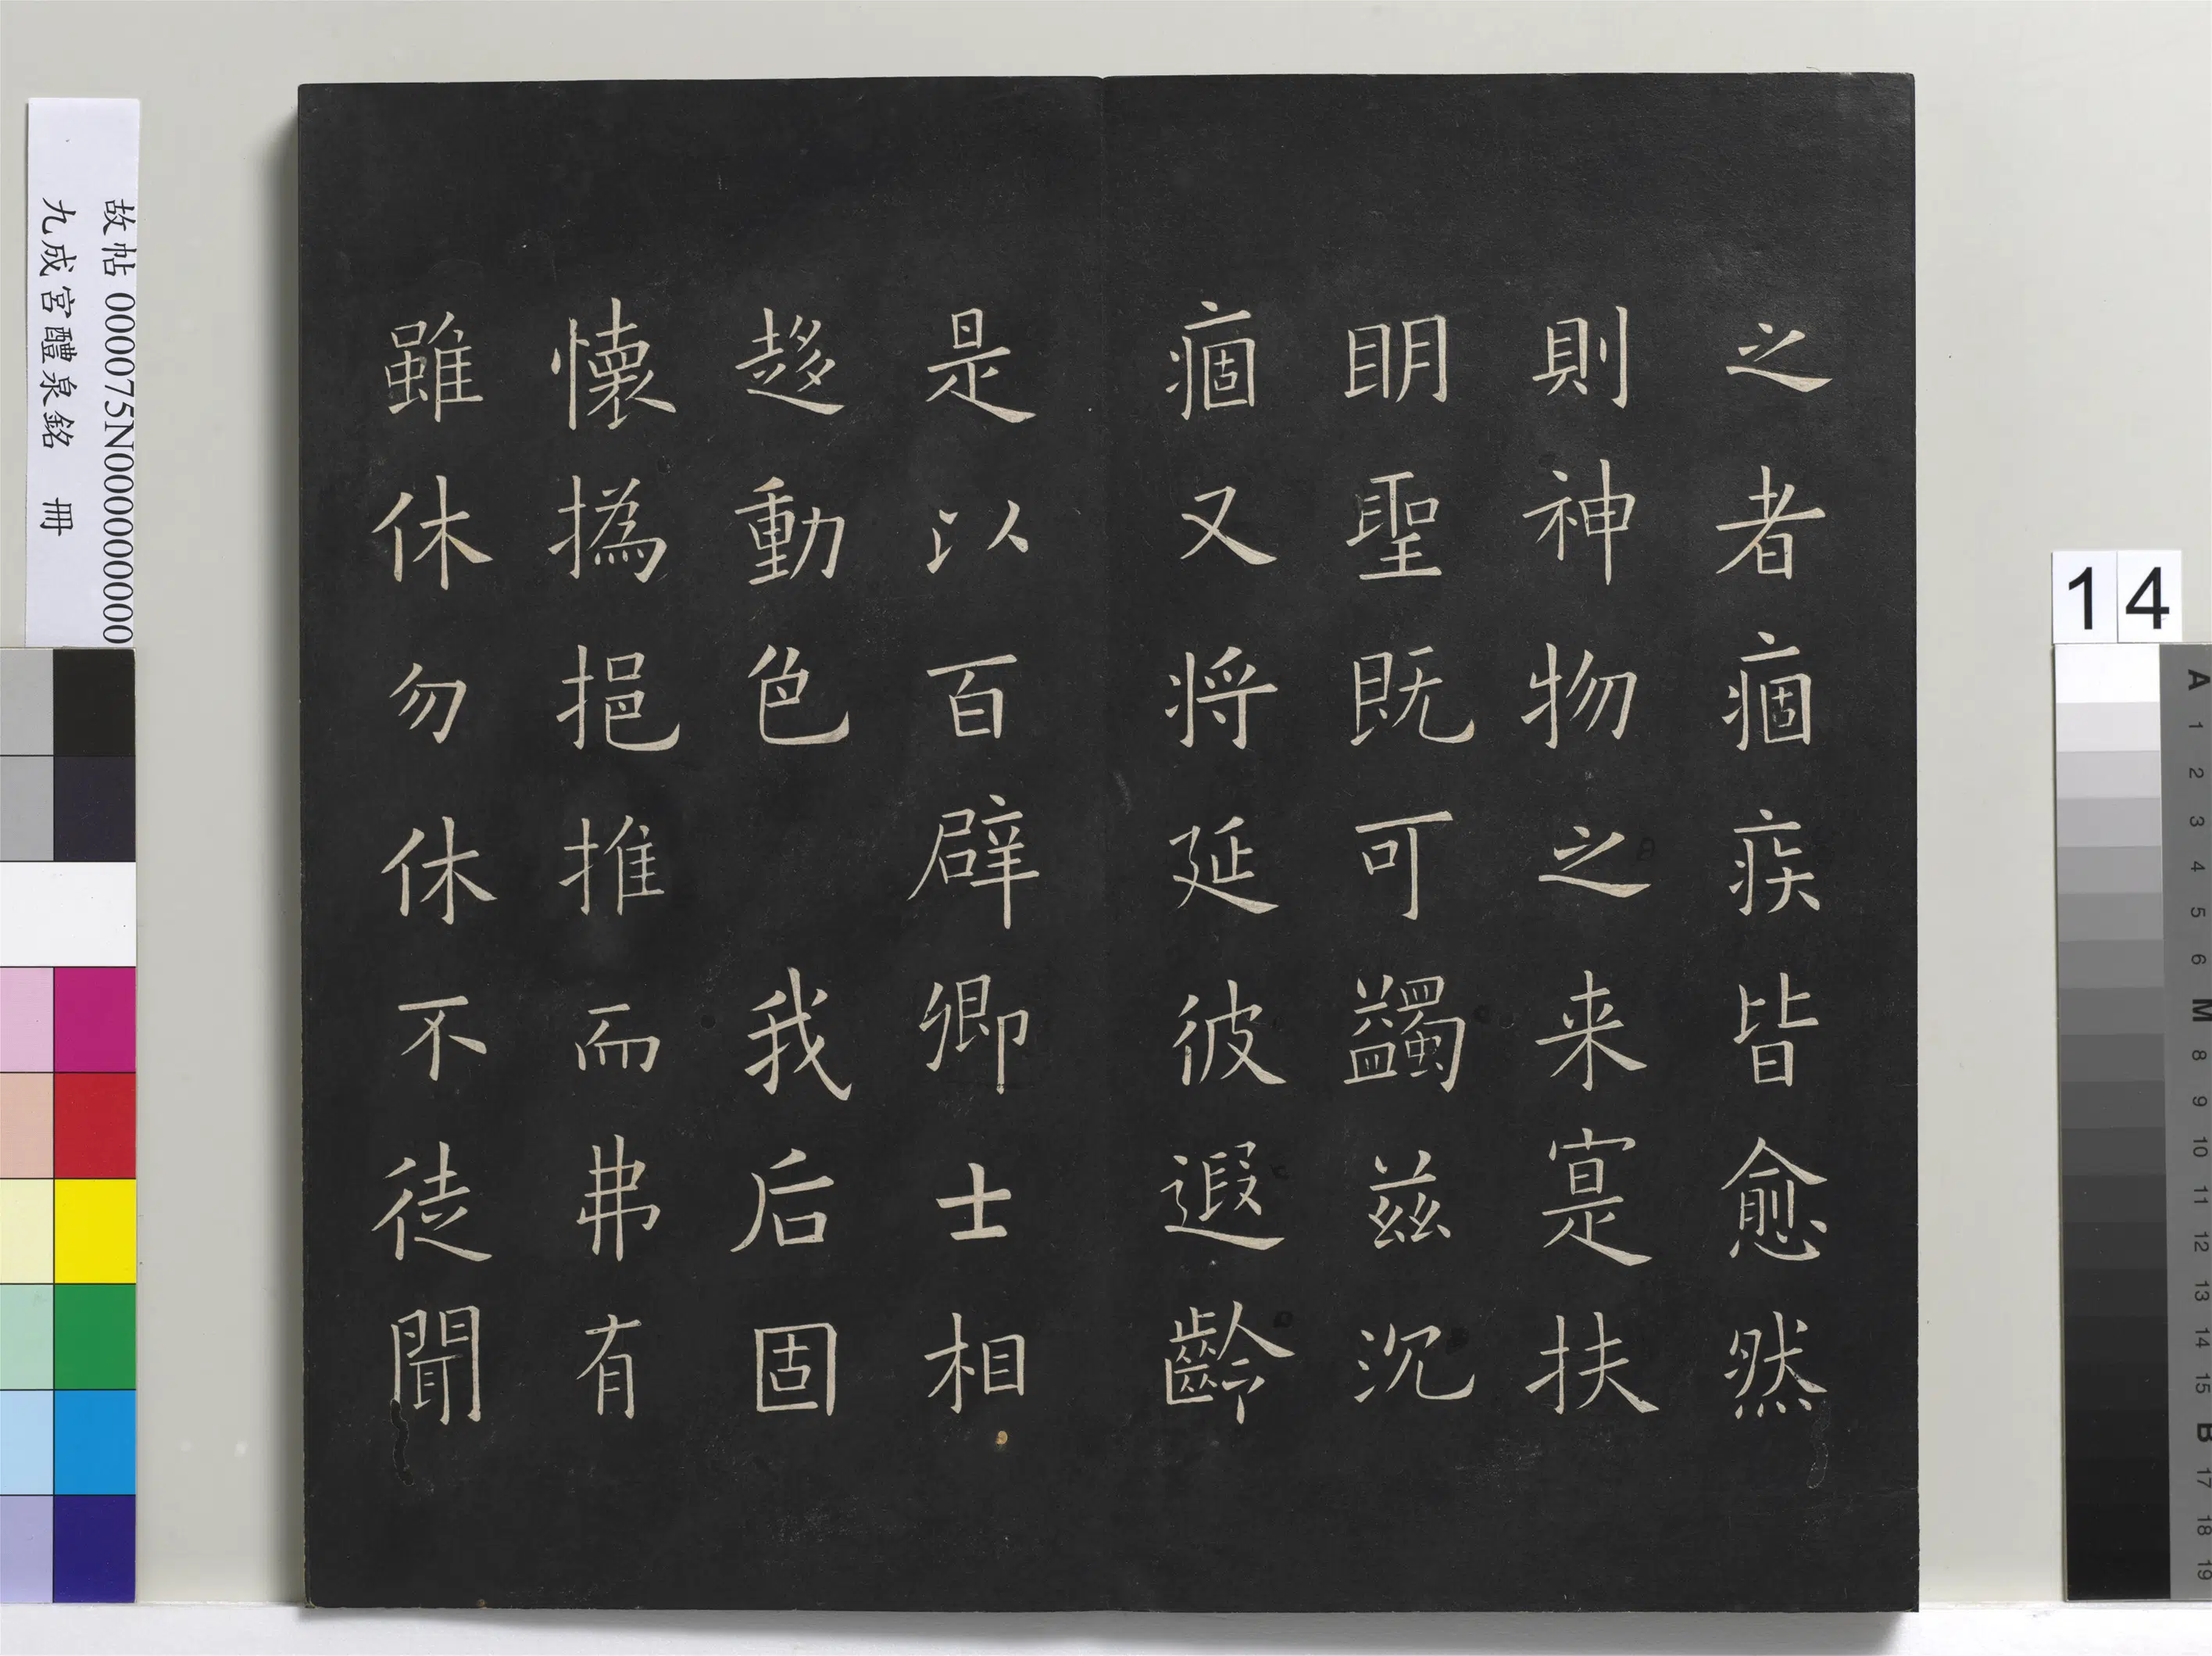 之者痼疾皆愈然
則神物之来寔扶
明聖既可蠲茲沉
痼又将延彼遐齡
是以百辟卿士相
趍動色 我后固
懷撝挹推而弗有
雖休勿休不徒聞
故帖 000075N000000000
九成宮醴泉銘 冊
14
A 1 2 3 4 5 6 M 8 9 10 11 12 13 14 15 B 17 18 19